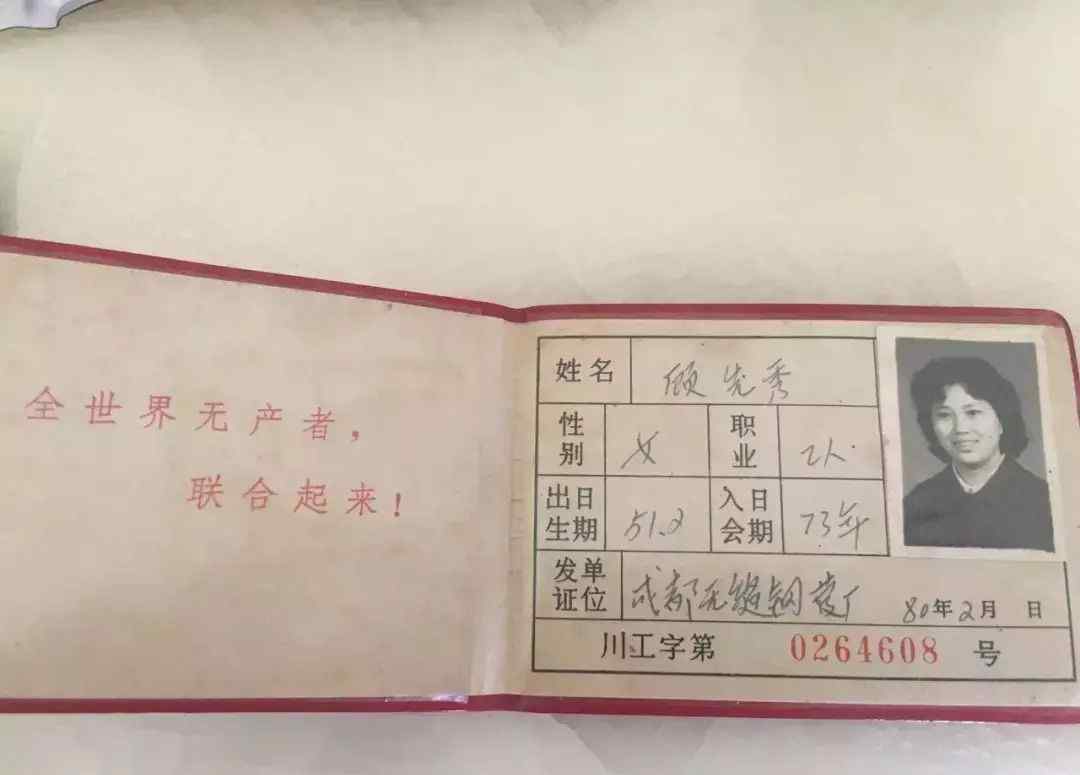 全世界无产者，
联合起来！
姓名 顾先秀
性别 女 职业 工人
出生日期 51.2 入会日期 73年
发证单位 成都无缝钢管厂 80年2月 日
川工字第 0264608 号